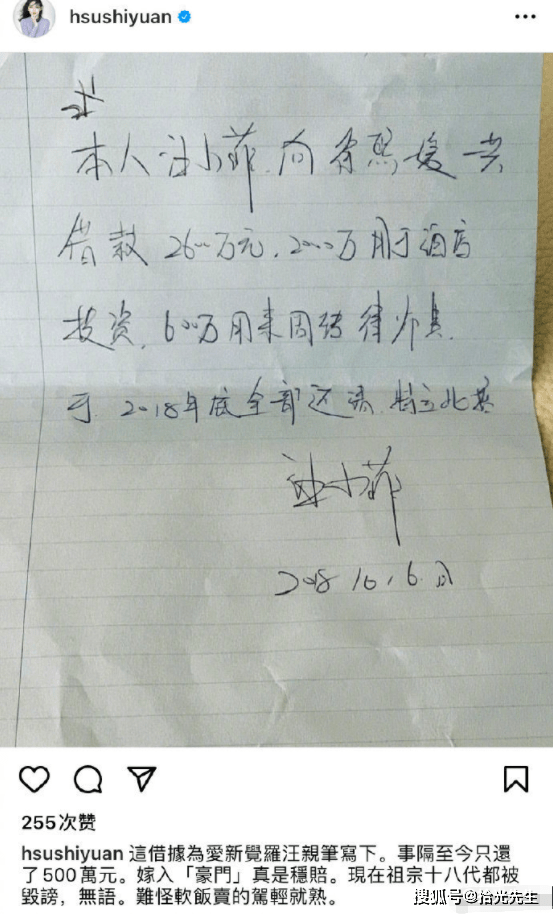 hsushiyuan
本人汪小菲,向徐熙媛共
借款 2600万元,2000万用于酒店
投资,600万用来周转律师费.
于 2018年底全部还清,特立此据
汪小菲
2018.10.6日
255次赞
hsushiyuan 這借據為愛新覺羅汪親筆寫下。事隔至今只還
了500萬元。嫁入「豪門」真是穩賠。現在祖宗十八代都被
毀謗,無語。難怪軟飯賣的駕輕就熟。
搜狐号@拾光先生